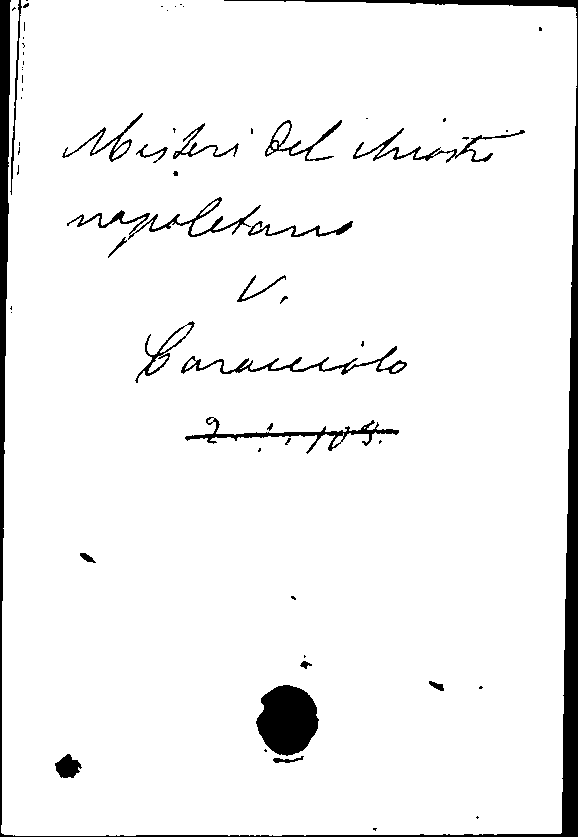 Misteri del chiostro
napoletano
V.
Caracciolo
2. 1. 109.